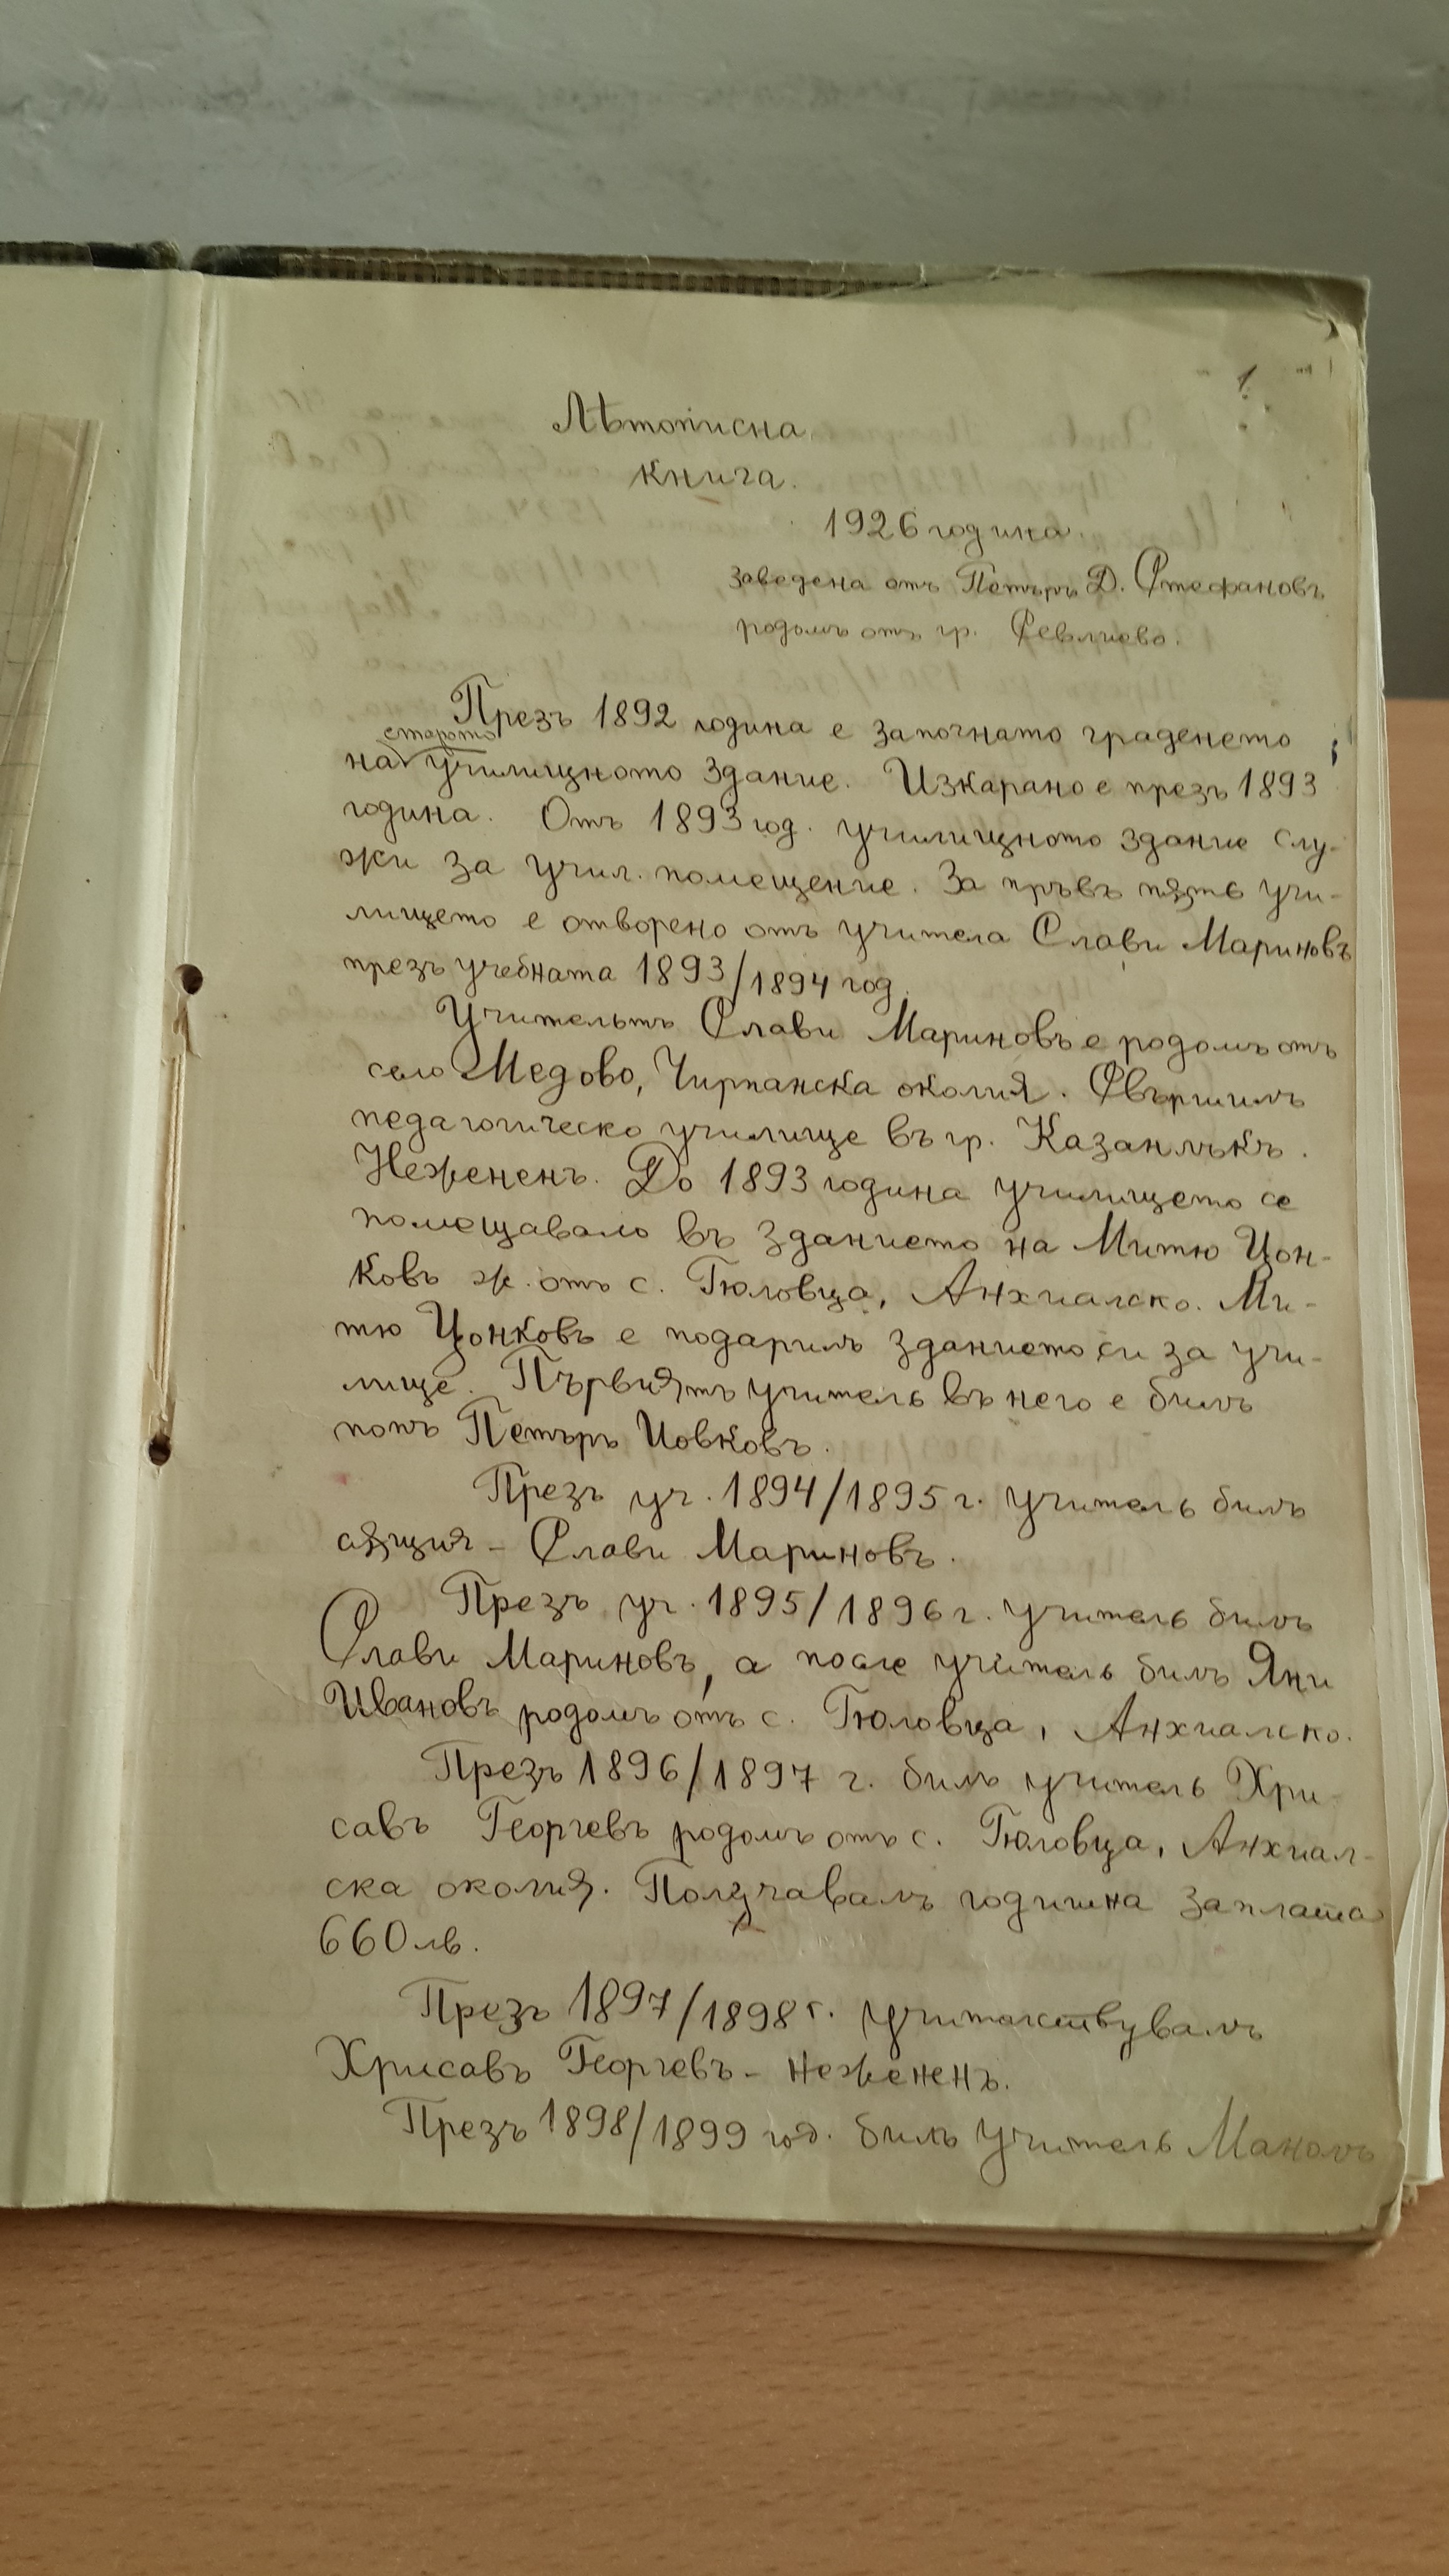 1.
Лѣтописна
книга.
1926 година.
заведена отъ Петъръ Д. Стефановъ
родомъ отъ гр. Севлиево.
Презъ 1892 година е започнато граденето
старото
на училищното здание. Изкарано е презъ 1893
година. Отъ 1893 год. училищното здание слу-
жи за учил. помещение. За пръвъ пѫть учи-
лището е отворено отъ учителя Слави Мариновъ
презъ учебната 1893/1894 год.
Учительтъ Слави Мариновъ е родомъ отъ
село Медово, Чирпанска околия. Свършилъ
педагогическо училище въ гр. Казанлъкъ.
Нежененъ. До 1893 година училището се
помещавало въ зданието на Митю Цон-
ковъ ж. отъ с. Гюловца, Анхиалско. Ми-
тю Цонковъ е подарилъ зданието си за учи-
лище. Първиятъ учитель въ него е билъ
попъ Петъръ Иовковъ.
Презъ уч. 1894/1895 г. учитель билъ
сѫщия - Слави Мариновъ.
Презъ уч. 1895/1896 г. учитель билъ
Слави Мариновъ, а после учитель билъ Яни
Ивановъ родомъ отъ с. Гюловца, Анхиалско.
Презъ 1896/1897 г. билъ учитель Хри-
савъ Георгевъ родомъ отъ с. Гюловца, Анхиал-
ска околия. Получавалъ годишна заплата
660 лв.
Презъ 1897/1898 г. учителствувалъ
Хрисавъ Георгевъ - нежененъ.
Презъ 1898/1899 год. билъ учитель Манолъ